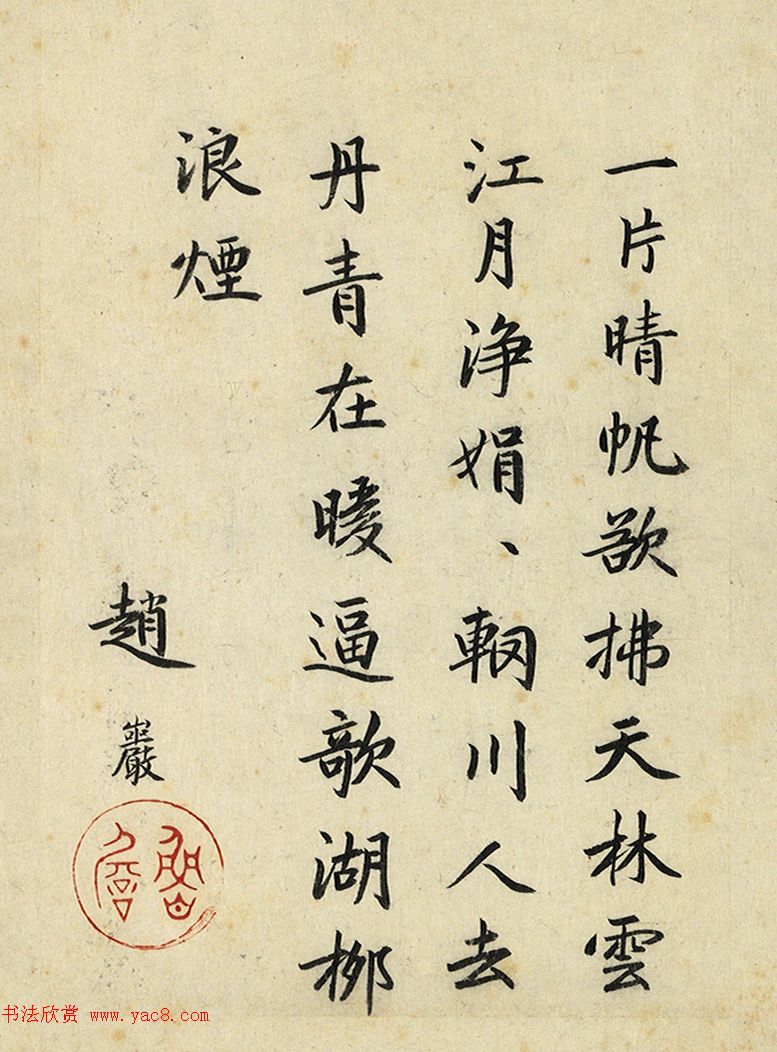 一片晴帆欲拂天林雲
江月浄娟、輞川人去
丹青在暖逼歌湖柳
浪煙
趙
巖
书法欣赏 www.yac8.com